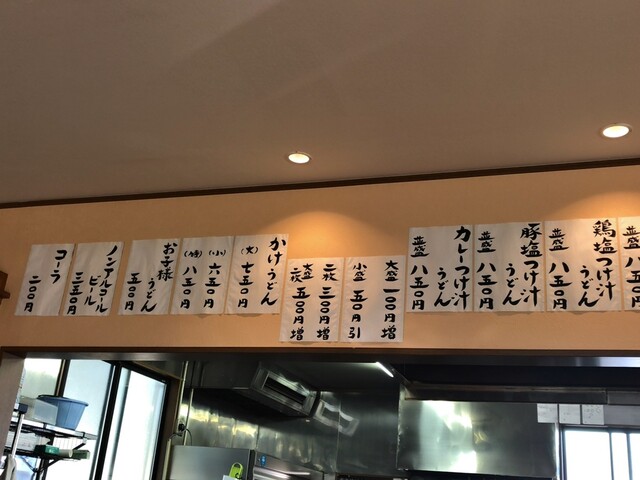 並盛 八五〇
鶏塩つけ汁
うどん
並盛 八五〇円
豚塩つけ汁
うどん
並盛 八五〇円
カレーつけ汁
うどん
並盛 八五〇円
大盛 一〇〇円増
小盛 五〇円引
二枚 三〇〇円増
大盛二枚 円増
かけうどん
(大) 七五〇円
(小) 六五〇円
八五〇円
お子様
うどん
五五〇円
ノンアルコール
ビール
三五〇円
コーラ
二〇〇円